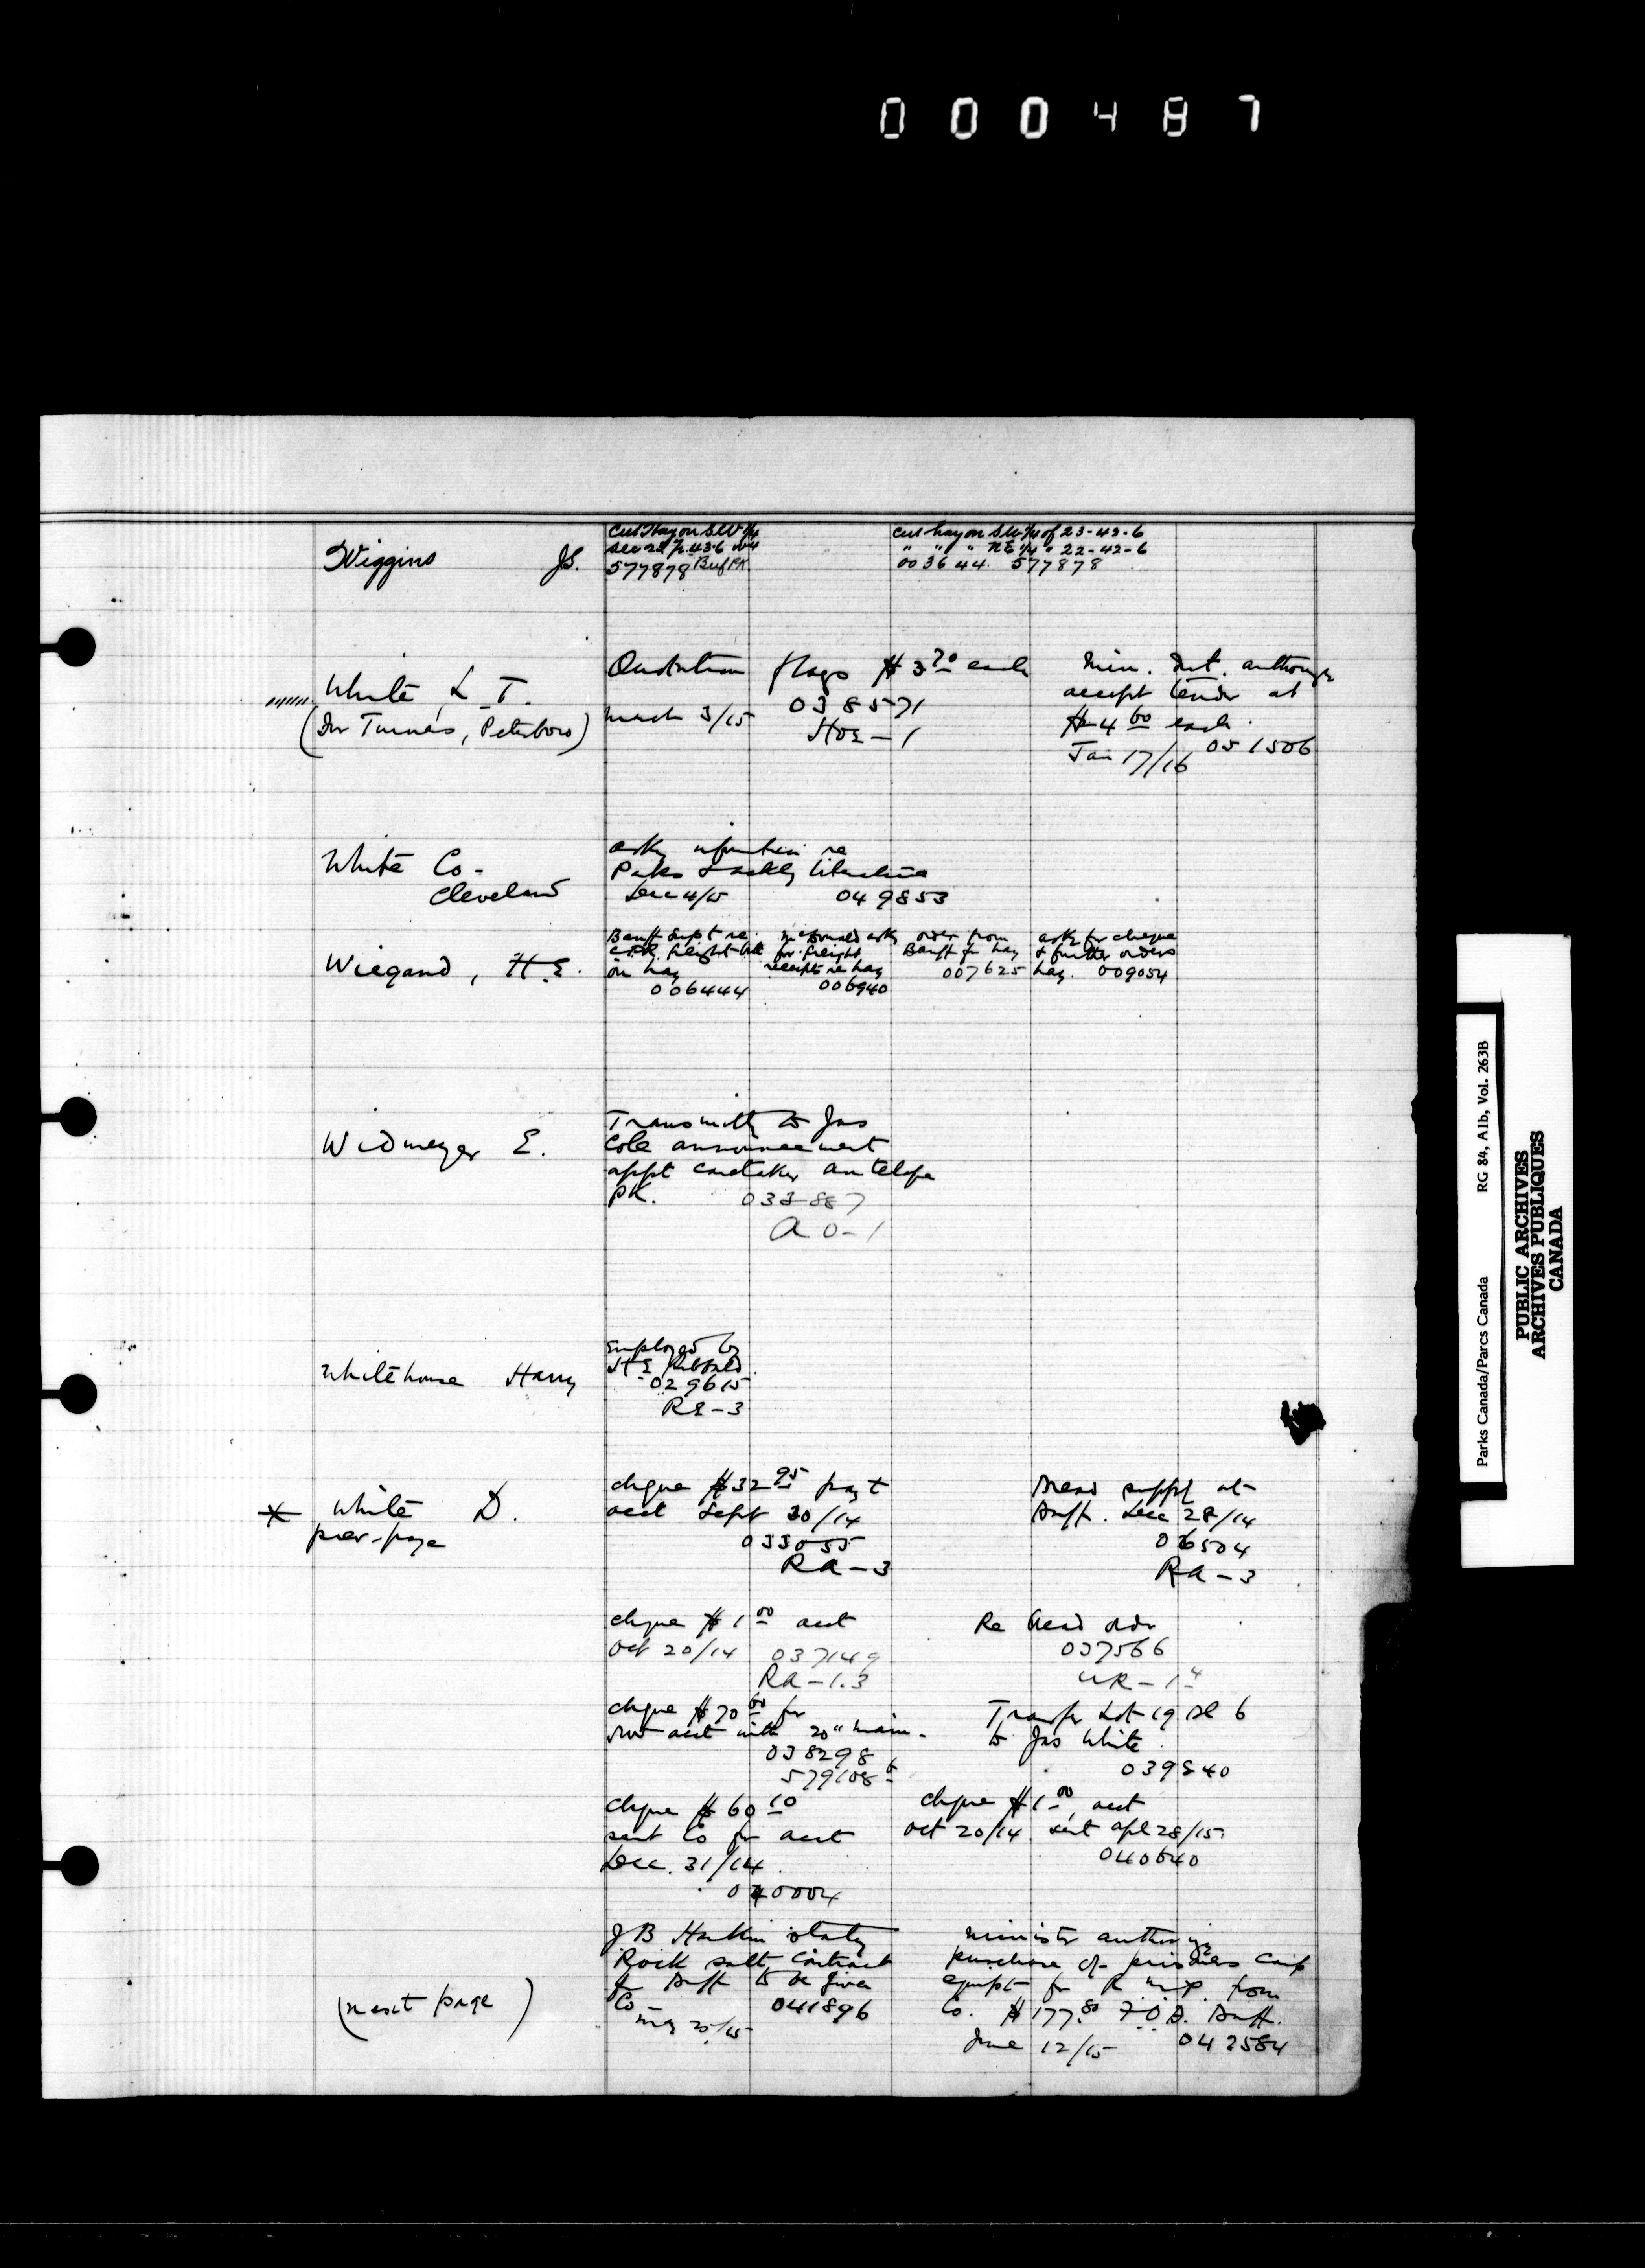 000487
Wiggins JS.
Cut Hay on SW 1/4
Sec 23 Tp. 43-6 W4
577878 Buf PK
Cut hay on SW 1/4 of 23-43-6
" " " NE 1/4 " 22-42-6
003644. 577878
White L T.
(For Turners, Peterboro)
Quotation flags $3 70 each
March 3/15 038571
HOE-1
Min. Int. authorizes
accept tender at
$4 60 each.
Jan 17/16 051506
White Co-
Cleveland
asks information re
Parks literature
Dec 4/15 049853
Wiegand, H.E.
Banff Supt re.
C.P.R. freight bill
on hay
006444
McDonald asks
for freight
receipts re hay
006940
order from
Banff for hay
007625
asks for cheque
& further orders
hay. 009054
Widmeyer E.
Transmitting to Jas
Cole announcement
appt caretaker Antelope
PK. 033887
A O-1
Whitehouse Harry
Employed by
H E
029615
RE-3
* White D.
prev-page
cheque $32 95 payt
acct Sept 30/14
033055
RA-3
Bread supply at
Buff. Dec 28/14
036504
RA-3
cheque $1 00 acct
Oct 20/14 037149
RA-1.3
Re Bread order
037566
UR-1 4
cheque $70 60 for
acct with 20" main-
038298
579108 6
Transfer Lot 19 Bl 6
to Jas White.
039840
cheque $60 10
sent Co for acct
Dec. 31/14.
040004
cheque $1 00, acct
Oct 20/14 sent Apl 28/15
040640
(next page)
J B Harkin stating
Rock salt, contract
for Buff to be given
Co-
May 25/15 041896
Minister authorizing
purchase of prisoners camp
equipt for R M P. from
Co. $177.80 F.O.B. Banff.
June 12/15 042584
Parks Canada/Parcs Canada RG 84, A1b, Vol. 263B
PUBLIC ARCHIVES
ARCHIVES PUBLIQUES
CANADA